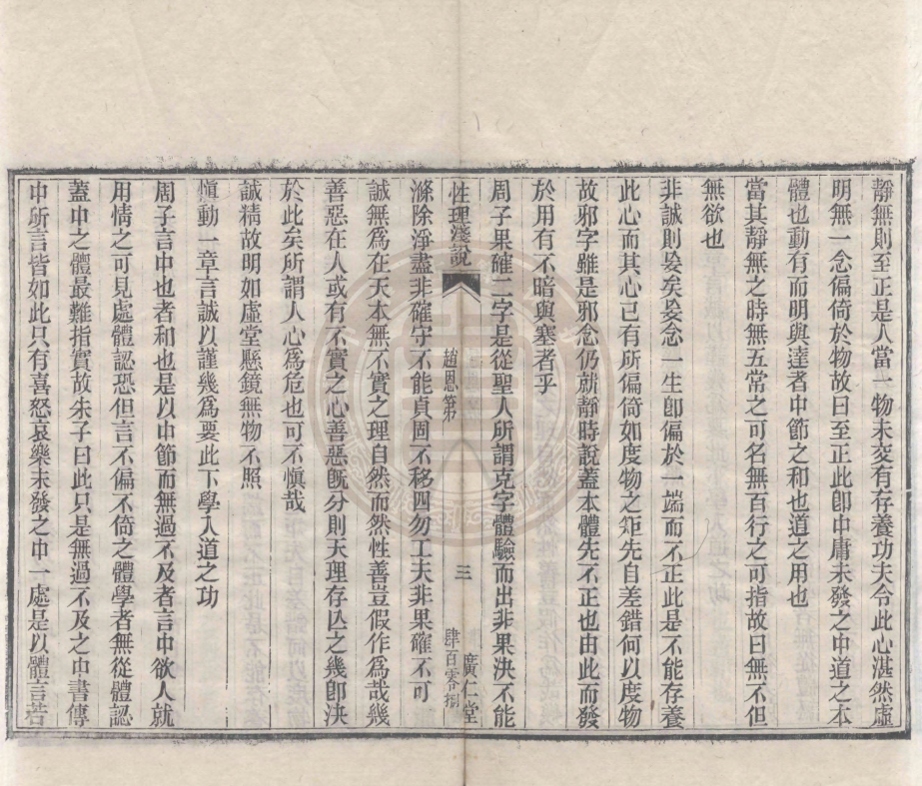 靜無則至正是人當一物未交有存養功夫令此心湛然虛
明無一念偏倚於物故曰至正此卽中庸未發之中道之本
體也動有而明與達者中節之和也道之用也
當其靜無之時無五常之可名無百行之可指故曰無不但
無欲也
非誠則妄矣妄念一生卽偏於一端而不正此是不能存養
此心而其心已有所偏倚如度物之矩先自差錯何以度物
故邪字雖是邪念仍就靜時說蓋本體先不正也由此而發
於用有不暗與塞者乎
周子果確二字是從聖人所謂克字體驗而出非果決不能
性理淺說
趙恩第
三
廣仁堂
肆百零捌
滌除淨盡非確守不能貞固不移四勿工夫非果確不可
誠無爲在天本無不實之理自然而然性善豈假作爲哉幾
善惡在人或有不實之心善惡旣分則天理存亾之幾卽決
於此矣所謂人心爲危也可不愼哉
誠精故明如虛堂懸鏡無物不照
愼動一章言誠以謹幾爲要此下學入道之功
周子言中也者和也是以中節而無過不及者言中欲人就
用情之可見處體認恐但言不偏不倚之體學者無從體認
蓋中之體最難指實故朱子曰此只是無過不及之中書傳
中所言皆如此只有喜怒哀樂未發之中一處是以體言若